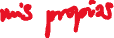 mis propias